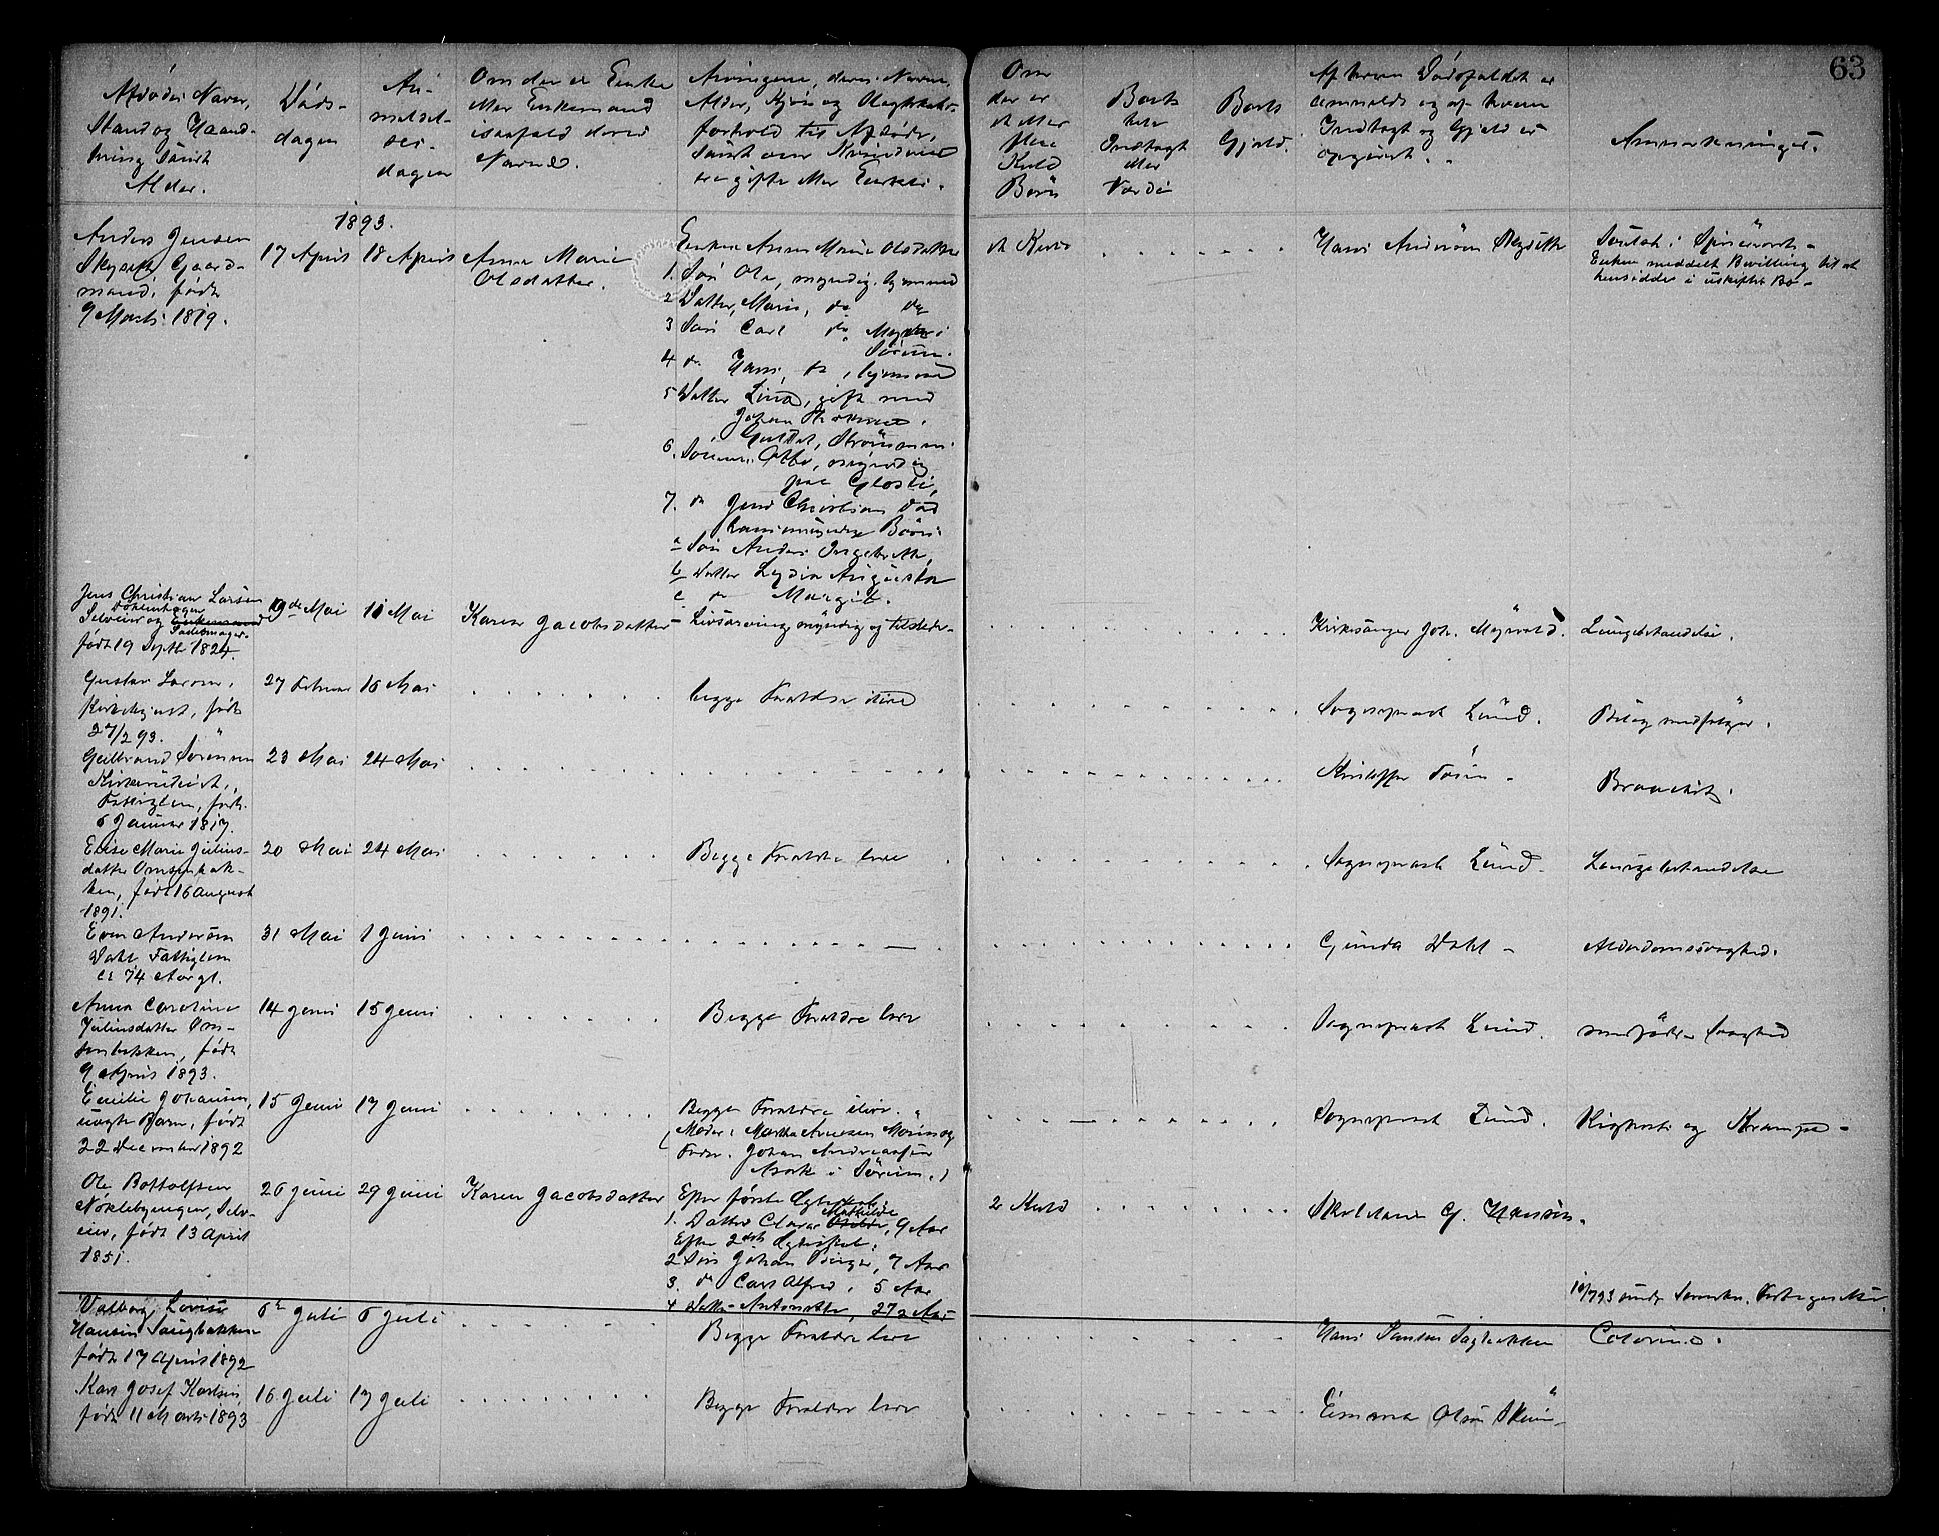 63
Afdødes Navn,
Stand og Haand-
tering samt
Alder.
Døds-
dagen
An-
meldel-
ses-
dagen
Om der er Enke
eller Enkemand
isaafald deres
Navne.
Arvingerne, deres Navne,
Alder, Kjøn og Slægtskabs-
forhold til Afdøde,
samt om Kvinderne
ere gifte eller Enker.
Om
der er
et eller
flere
Kuld
Børn
Boets
hele
Indtægt
eller
Værdi
Boets
Gjæld.
Af hvem Dødsfaldet er
anmeldt og af hvem
Indtægt og Gjæld er
opgivet.
Anmærkninger.
1893.
Anders Jensen
Skyseth Gaard-
mand, født
9 Marts 1819.
17 April
18 April
Anne Marie
Olsdatter.
Enken Anne Marie Olsdatter
1. Søn Ole, myndig, hjemme
2 Datter, Marie, do do
3 Søn Carl do
Sørum.
4 do Hans, do, hjemme
5 Datter Lina, gift med
Johan
Strømmen
6. Sønnen Otto, myndig
paa
7. do Jens Christian død
hans umyndige Børn:
a Søn Anders Ingebreth,
b Datter Lydia Augusta
c do Margit.
et Kuld
Hans Andersen Skyseth
Enken meddelt Bevilling til at
hensidde i uskiftet Bo -
Jens Christian Larsen
Selveier og Enkemand
Sadelmager
født 19 Septbr 1824.
9de Mai
11 Mai
Karen Jacobsdatter
Livsarving myndig og tilstede -
Kirkesanger Joh. Myrvold.
Lungebetændelse.
Gustav Larsen,
født
27/2 93.
27 Februar
16 Mai
begge Forældre ilive
Sogneprest Lund.
Bilag medfølger.
Gulbrand Sørensen
Fattiglem, født
6 Januar 1817.
23 Mai
24 Mai
Kristoffer
Bronchit.
Elise Marie Julius-
datter Omsenbak-
ken, født 16 August
1891.
20 Mai
24 Mai
Begge Forældre leve
Sogneprest Lund.
Lungebetændelse
Even Andersen
Dahl Fattiglem
ca 74 Aar gl.
31 Mai
1 Juni
Gunda Dahl -
Alderdomssvaghed.
Anna Caroline
Juliusdatter Om-
senbakken, født
9 April 1893.
14 Juni
15 Juni
Begge Forældre leve
Sogneprest Lund.
medfødt Svaghed
Emilie Johansen,
uægte Barn, født
22 December 1892
15 Juni
17 Juni
Begge Forældre ilive.
( Moder: Martha Arnesen
Fader: Johan Andreassen
Asak i Sørum.)
Sogneprest Lund.
Kighoste og Krampe -
Ole Bottolfsen
Nøklebyengen, Selv-
eier, født 13 April
1851.
26 Juni
29 Juni
Karen Jacobsdatter
Efter første Ægteskab,
1. Datter Clara Mathilde, 9 Aar
Efter 2det Ægteskab:
2 Søn Johan Birger, 7 Aar
3. do Carl Alfred, 5 Aar
4 Datter Antonette, 2 7/12 Aar
2 Kuld
G. Hansen.
Valborg Lovise
Hansen Saugbakken
født 17 April 1892
6te Juli
6 Juli
Begge Forældre leve
Hans Jensen Sagbakken
Kar Josef Karlsen
født 11 Marts 1893
16 Juli
17 Juli
Begge Forældre leve
Emma Olsen